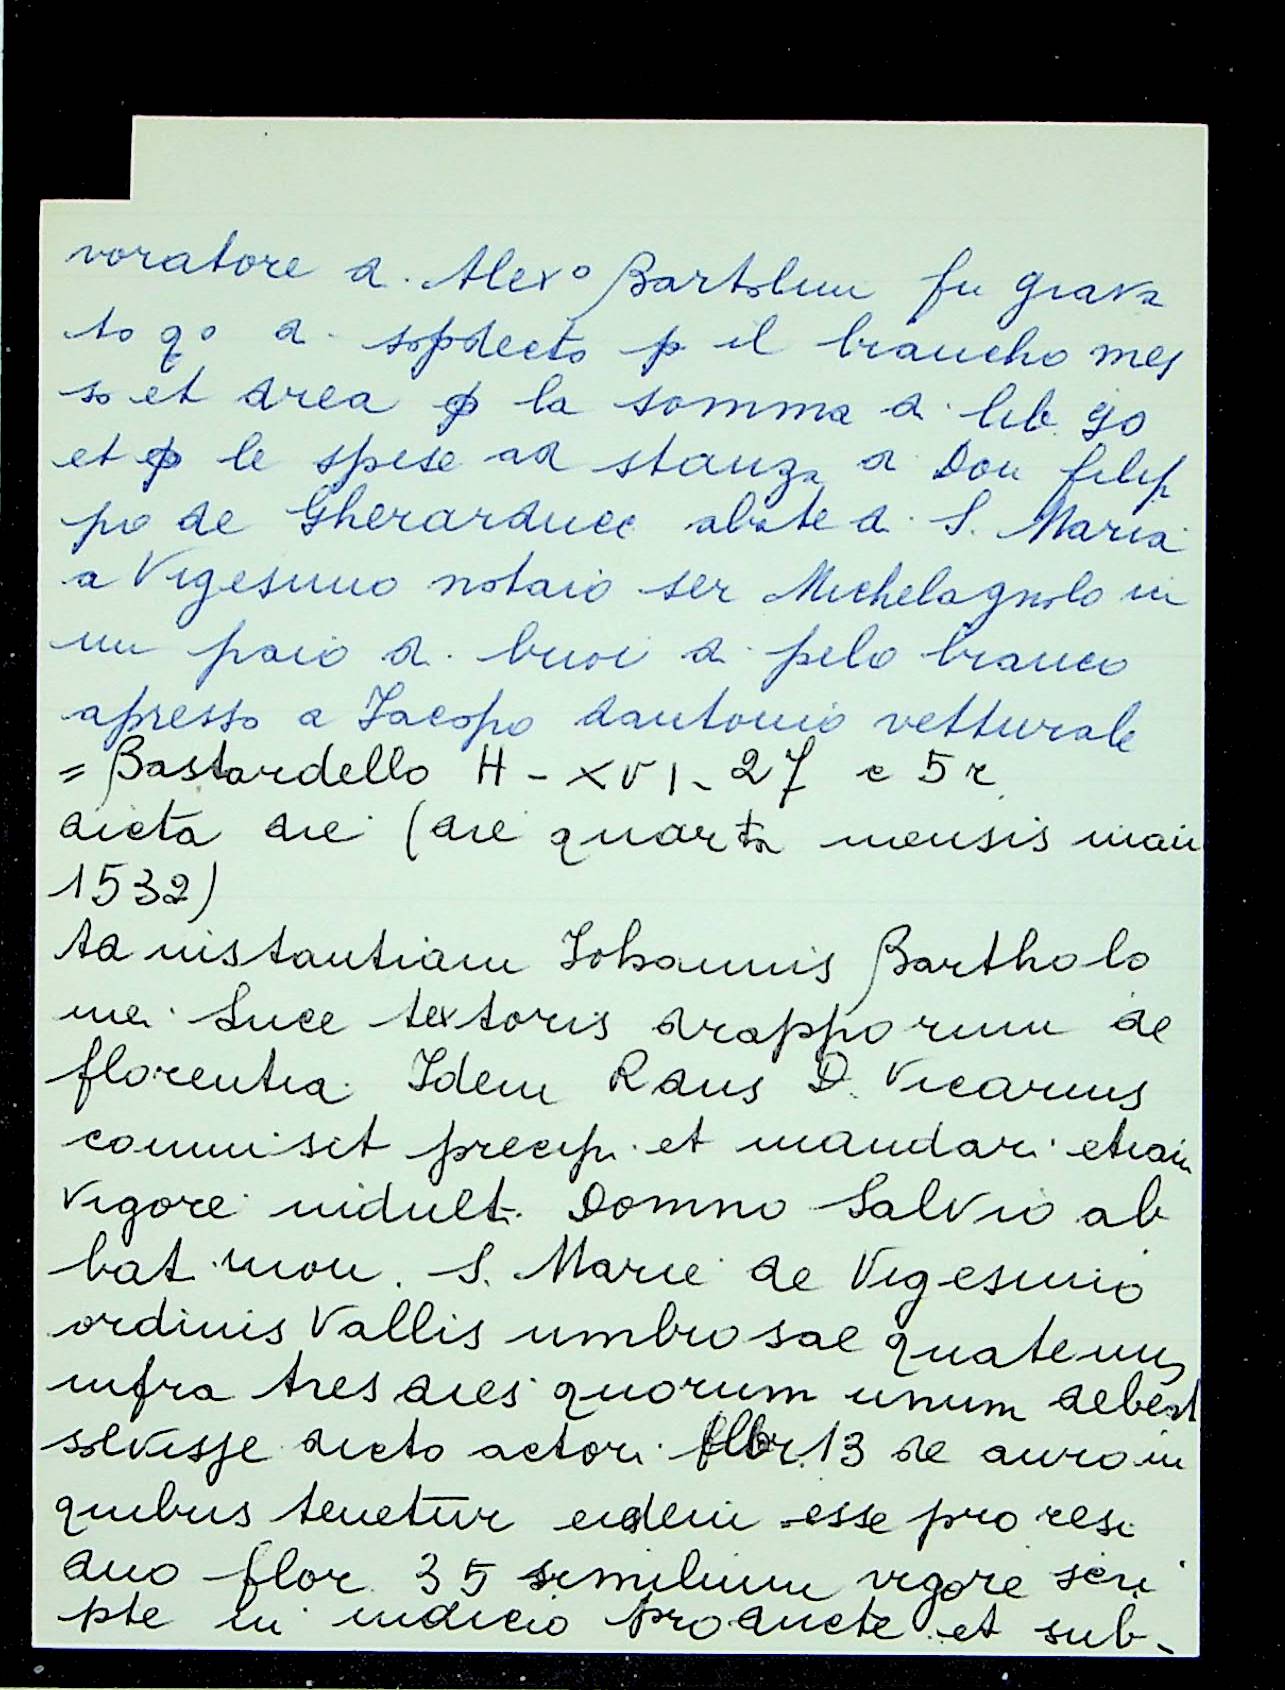 voratore di Alexº Bartolini fu grava
to qº di sopdecto p il brancho mes
so et area p la somma di lib. 90
et p le spese ad stanza di Don filip
po de Gherarducci abate di S. Maria
a Vigesimo notaio ser Michelagnolo in
un paio di buoi di pelo branco
apresso a Jacopo dantonio vetturale
= Bastardello H - XVI - 27 c 5 r
dicta die (die quarta mensis maii
1532)
Ad instantiam Johannis Bartholo
mei Luce textoris drapporum de
florentia Idem R dus D. Vicarius
commisit precipi et mandari etiam
vigore indult. Domno Salvio ab
bat. mon. S. Marie de Vigesimio
ordinis Vallis umbrosae quatenus
infra tres dies quorum unum debeat
solvisse dicto actori flor. 13 de auro in
quibus tenetur eidem esse pro resi
duo flor. 35 similium vigore scri
pte in iudicio producte et sub-